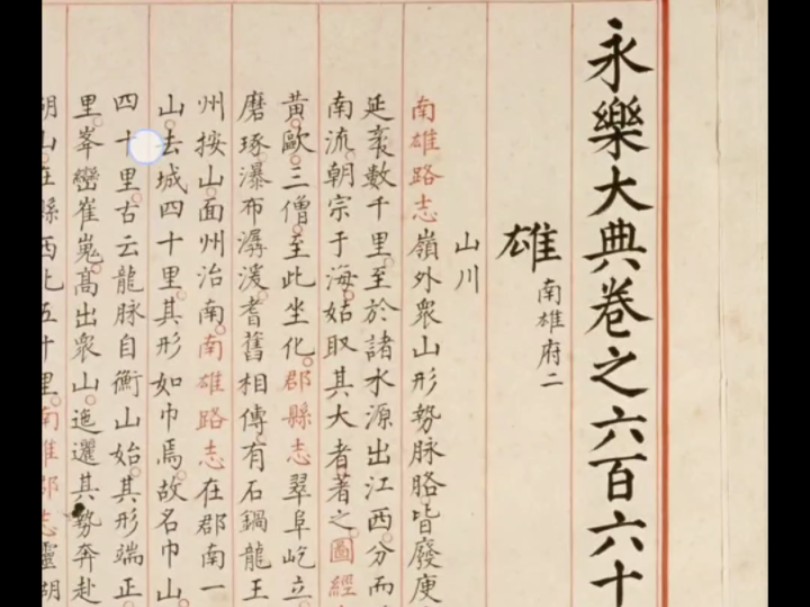 永樂大典卷之六百六十
雄 南雄府二
山川
南雄路志嶺外衆山形勢脉胳皆廢庾
延袤數千里至於諸水源出江西分而
南流朝宗于海姑取其大者著之圖經
黃歐三僧至此坐化郡縣志翠阜屹立
磨琢瀑布潺湲耆舊相傳有石鍋龍王
州按山面州治南南雄路志在郡南一
山去城四十里其形如巾焉故名巾山
四十里古云龍脉自衡山始其形端正
里峯巒崔嵬高出衆山迤邐其勢奔赴
胡山在縣西北五十里南雄郡志靈湖